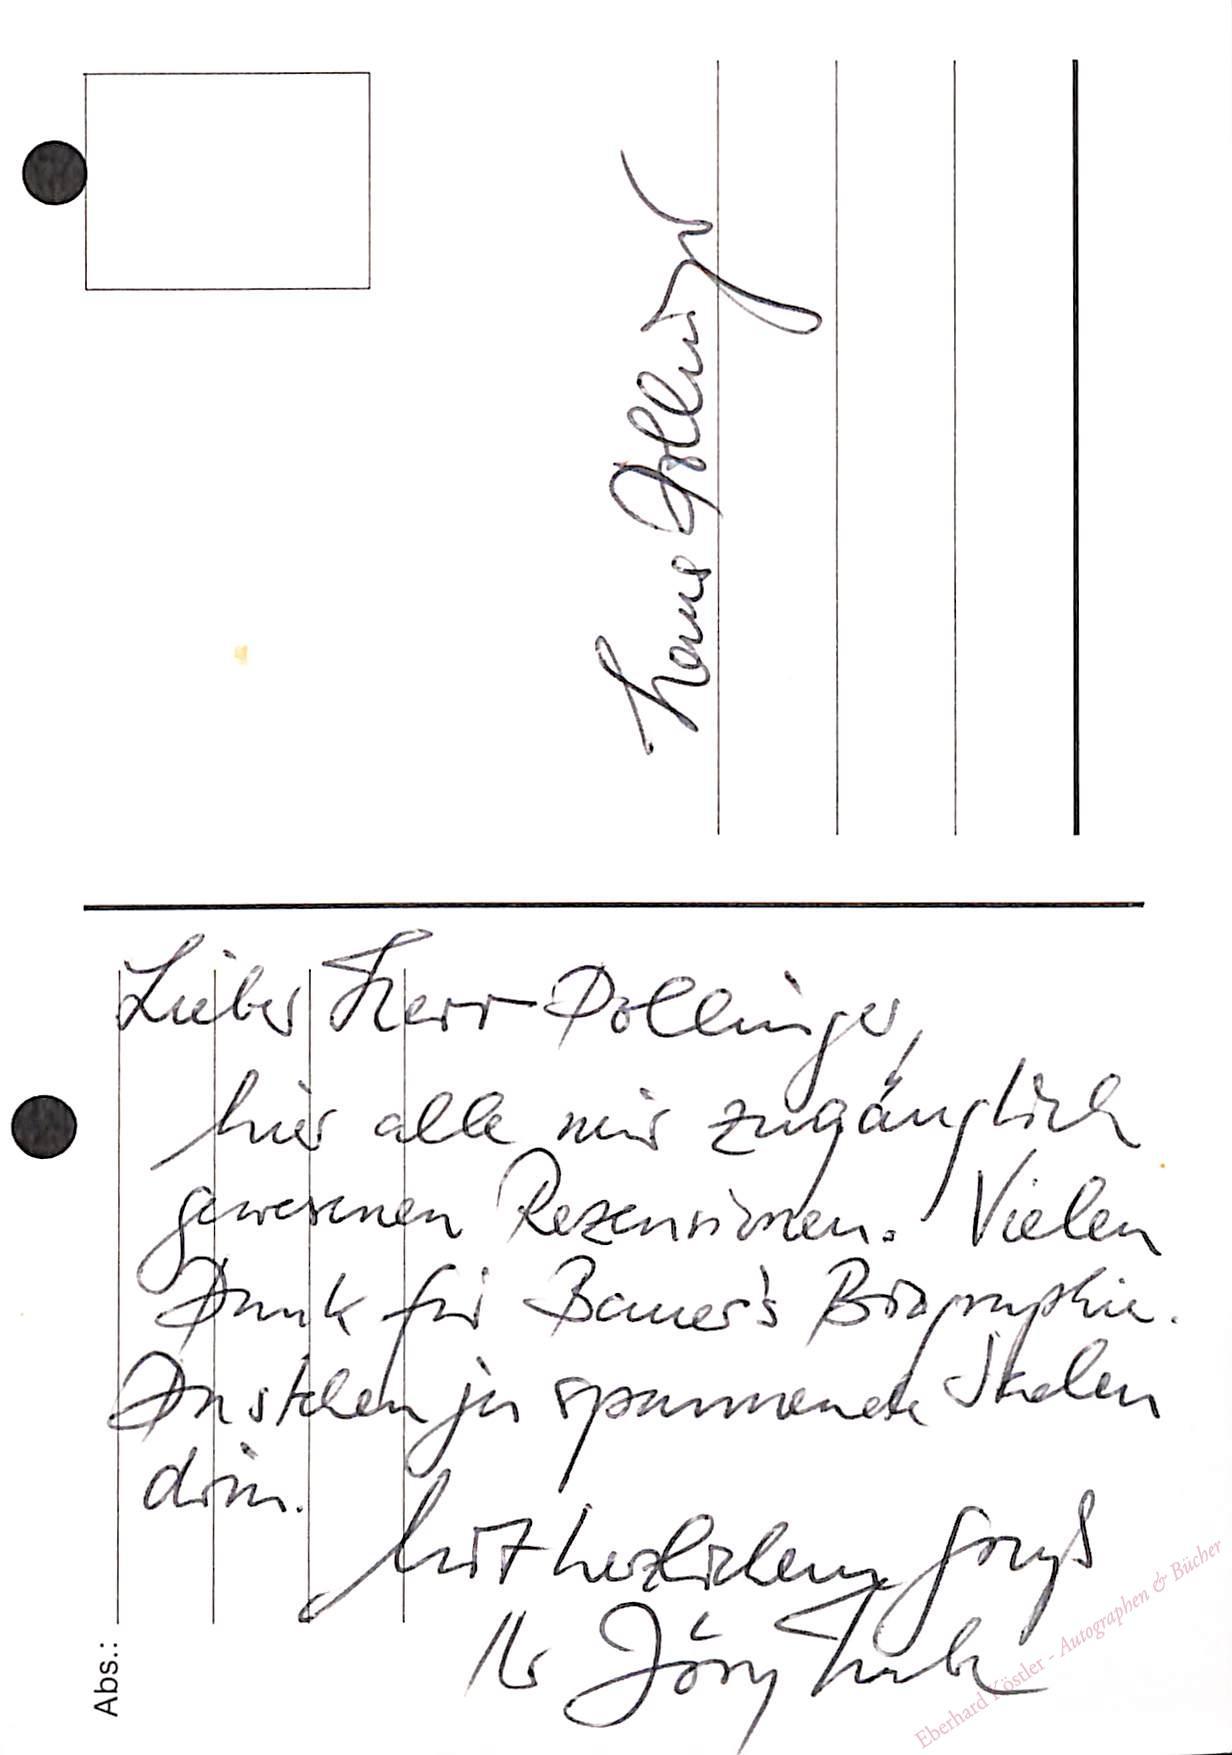 Hans Dollinger
Lieber Herr Dollinger,
hier alle mir zugänglich
gewesenen Rezensionen. Vielen
Dank für Bauer's Biographie.
Da stehen ja spannende Sachen
drin.
Mit herzlichem Gruß
Ihr Jörg
Abs.:
Eberhard Köstler - Autographen & Bücher